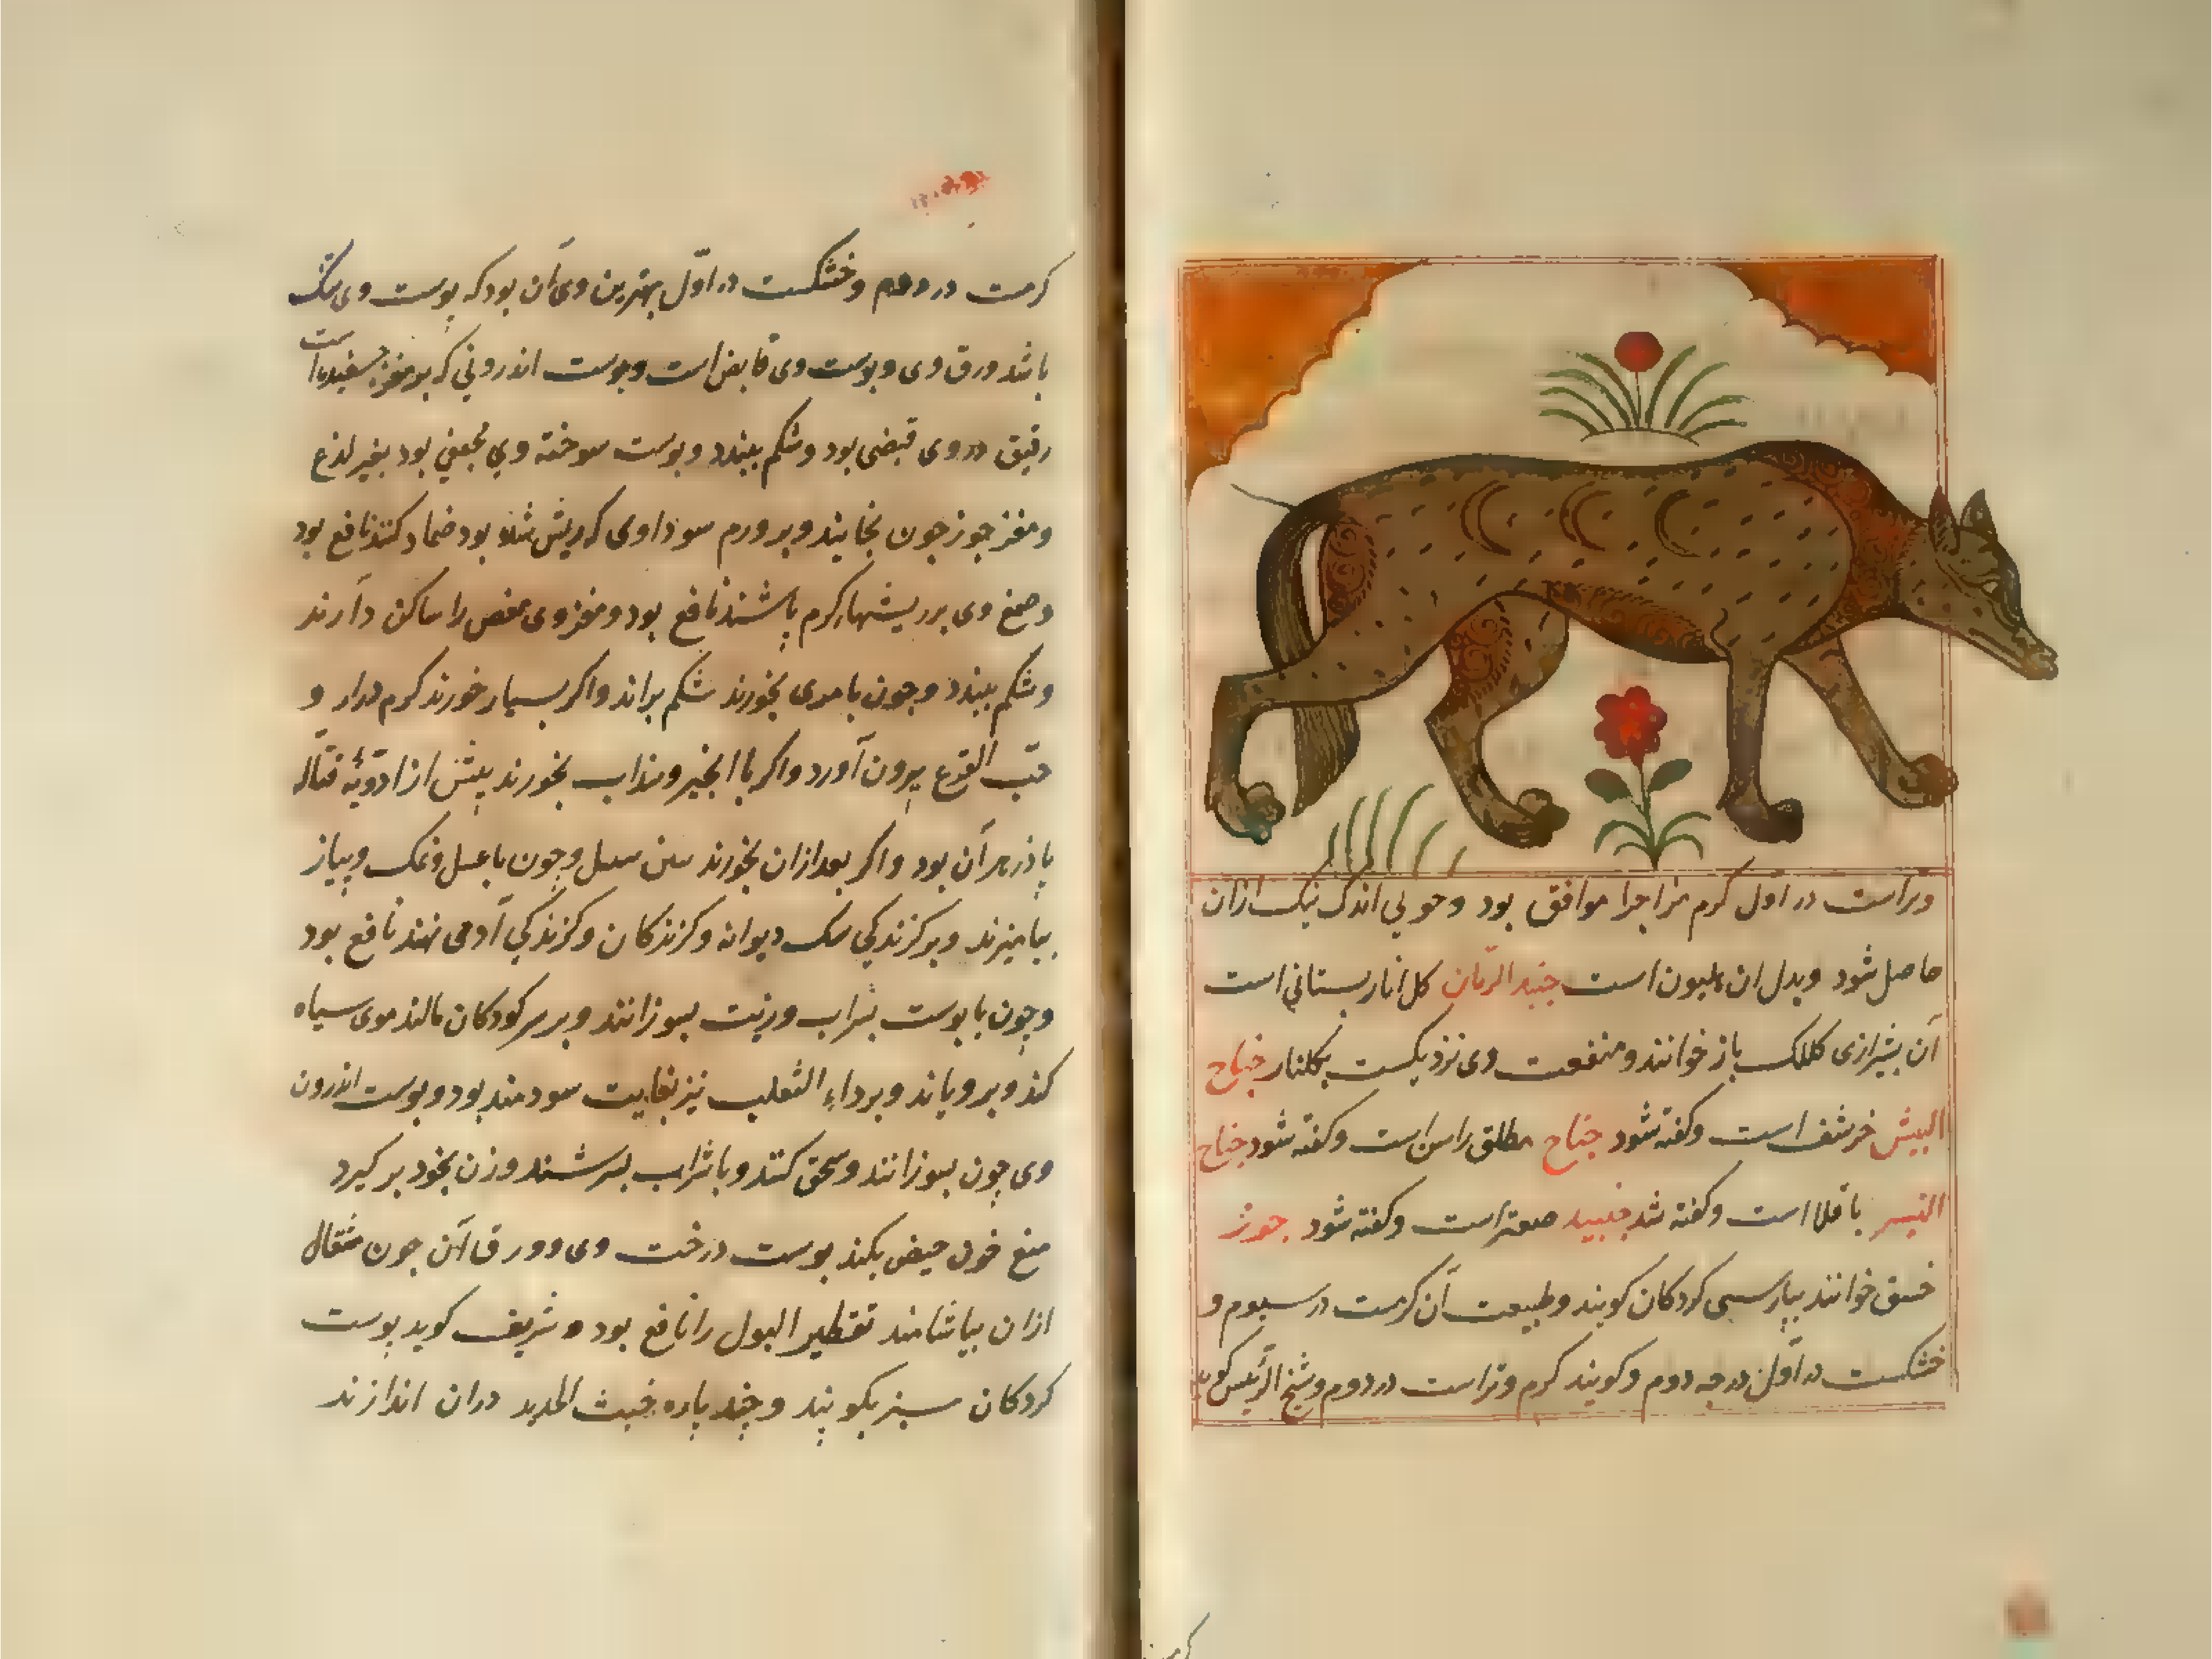 وتراست در اول کرم مزاجرا موافق بود و خوبی اندک نیک ازان
حاصل شود و بدل ان هلیون است جنبد الرمان کل انار بستانی است
آن بشیرازی کللک باز خوانند و منفعت وی نزدیکست بکلنار جناح
البیش خرشف است وکفته شود جناح مطلق راسن است وکفته شود جناح
النسر باقلا است وکفته شد جنبید صعتر است وکفته شود جوز
خسق خوانند بپارسی کردکان کویند وطبیعت آن کرمست در سیوم و
خشکست در اول درجه دوم وکویند کرم وتراست در دوم وشیخ الرئیس کوید
کرمست
کرمست در دوم وخشکست در اول بهترین وی آن بود که پوست وی تنک
باشد ورق وی وپوست وی قابض است وپوست اندرونی که بر مغز جسفیده است
رقیق در وی قبضی بود وشکم ببندد وپوست سوخته وی مجففی بود بغیر لذع
ومغز جوز چون بخایند وبر ورم سوداوی که ریش شده بود ضماد کنند نافع بود
وصمغ وی بر ریشهار کرم پاشند نافع بود ومغز وی مغص را ساکن دارند
وشکم ببندد وچون با مری بخورند شکم براند واکر بسیار خورند کرم دراز و
حب القرع بیرون آورد واکر با انجیر وسذاب بخورند پیش از ادویه قتاله
پاذزهر آن بود واکر بعد ازان بخورند وچون با عسل ونمک وپیاز
بیامیزند وبر کزندکی سک دیوانه وکزندکان وکزندکی آدمی نهند نافع بود
وچون با پوست بشراب وزیت بسوزانند وبر سر کودکان مالند موی سیاه
کند وبرویاند وبر داء الثعلب نیز بغایت سودمند بود وپوست اندرون
وی چون بسوزانند وسحق کنند وبا شراب بسرشند وزن بخود بر کیرد
منع خون حیض بکند پوست درخت وی وورق آن چون مثقال
ازان بیاشامند تقطیر البول را نافع بود و شریف کوید پوست
کردکان سبز بکوپند وچند پاره خبث الحدید دران اندازند